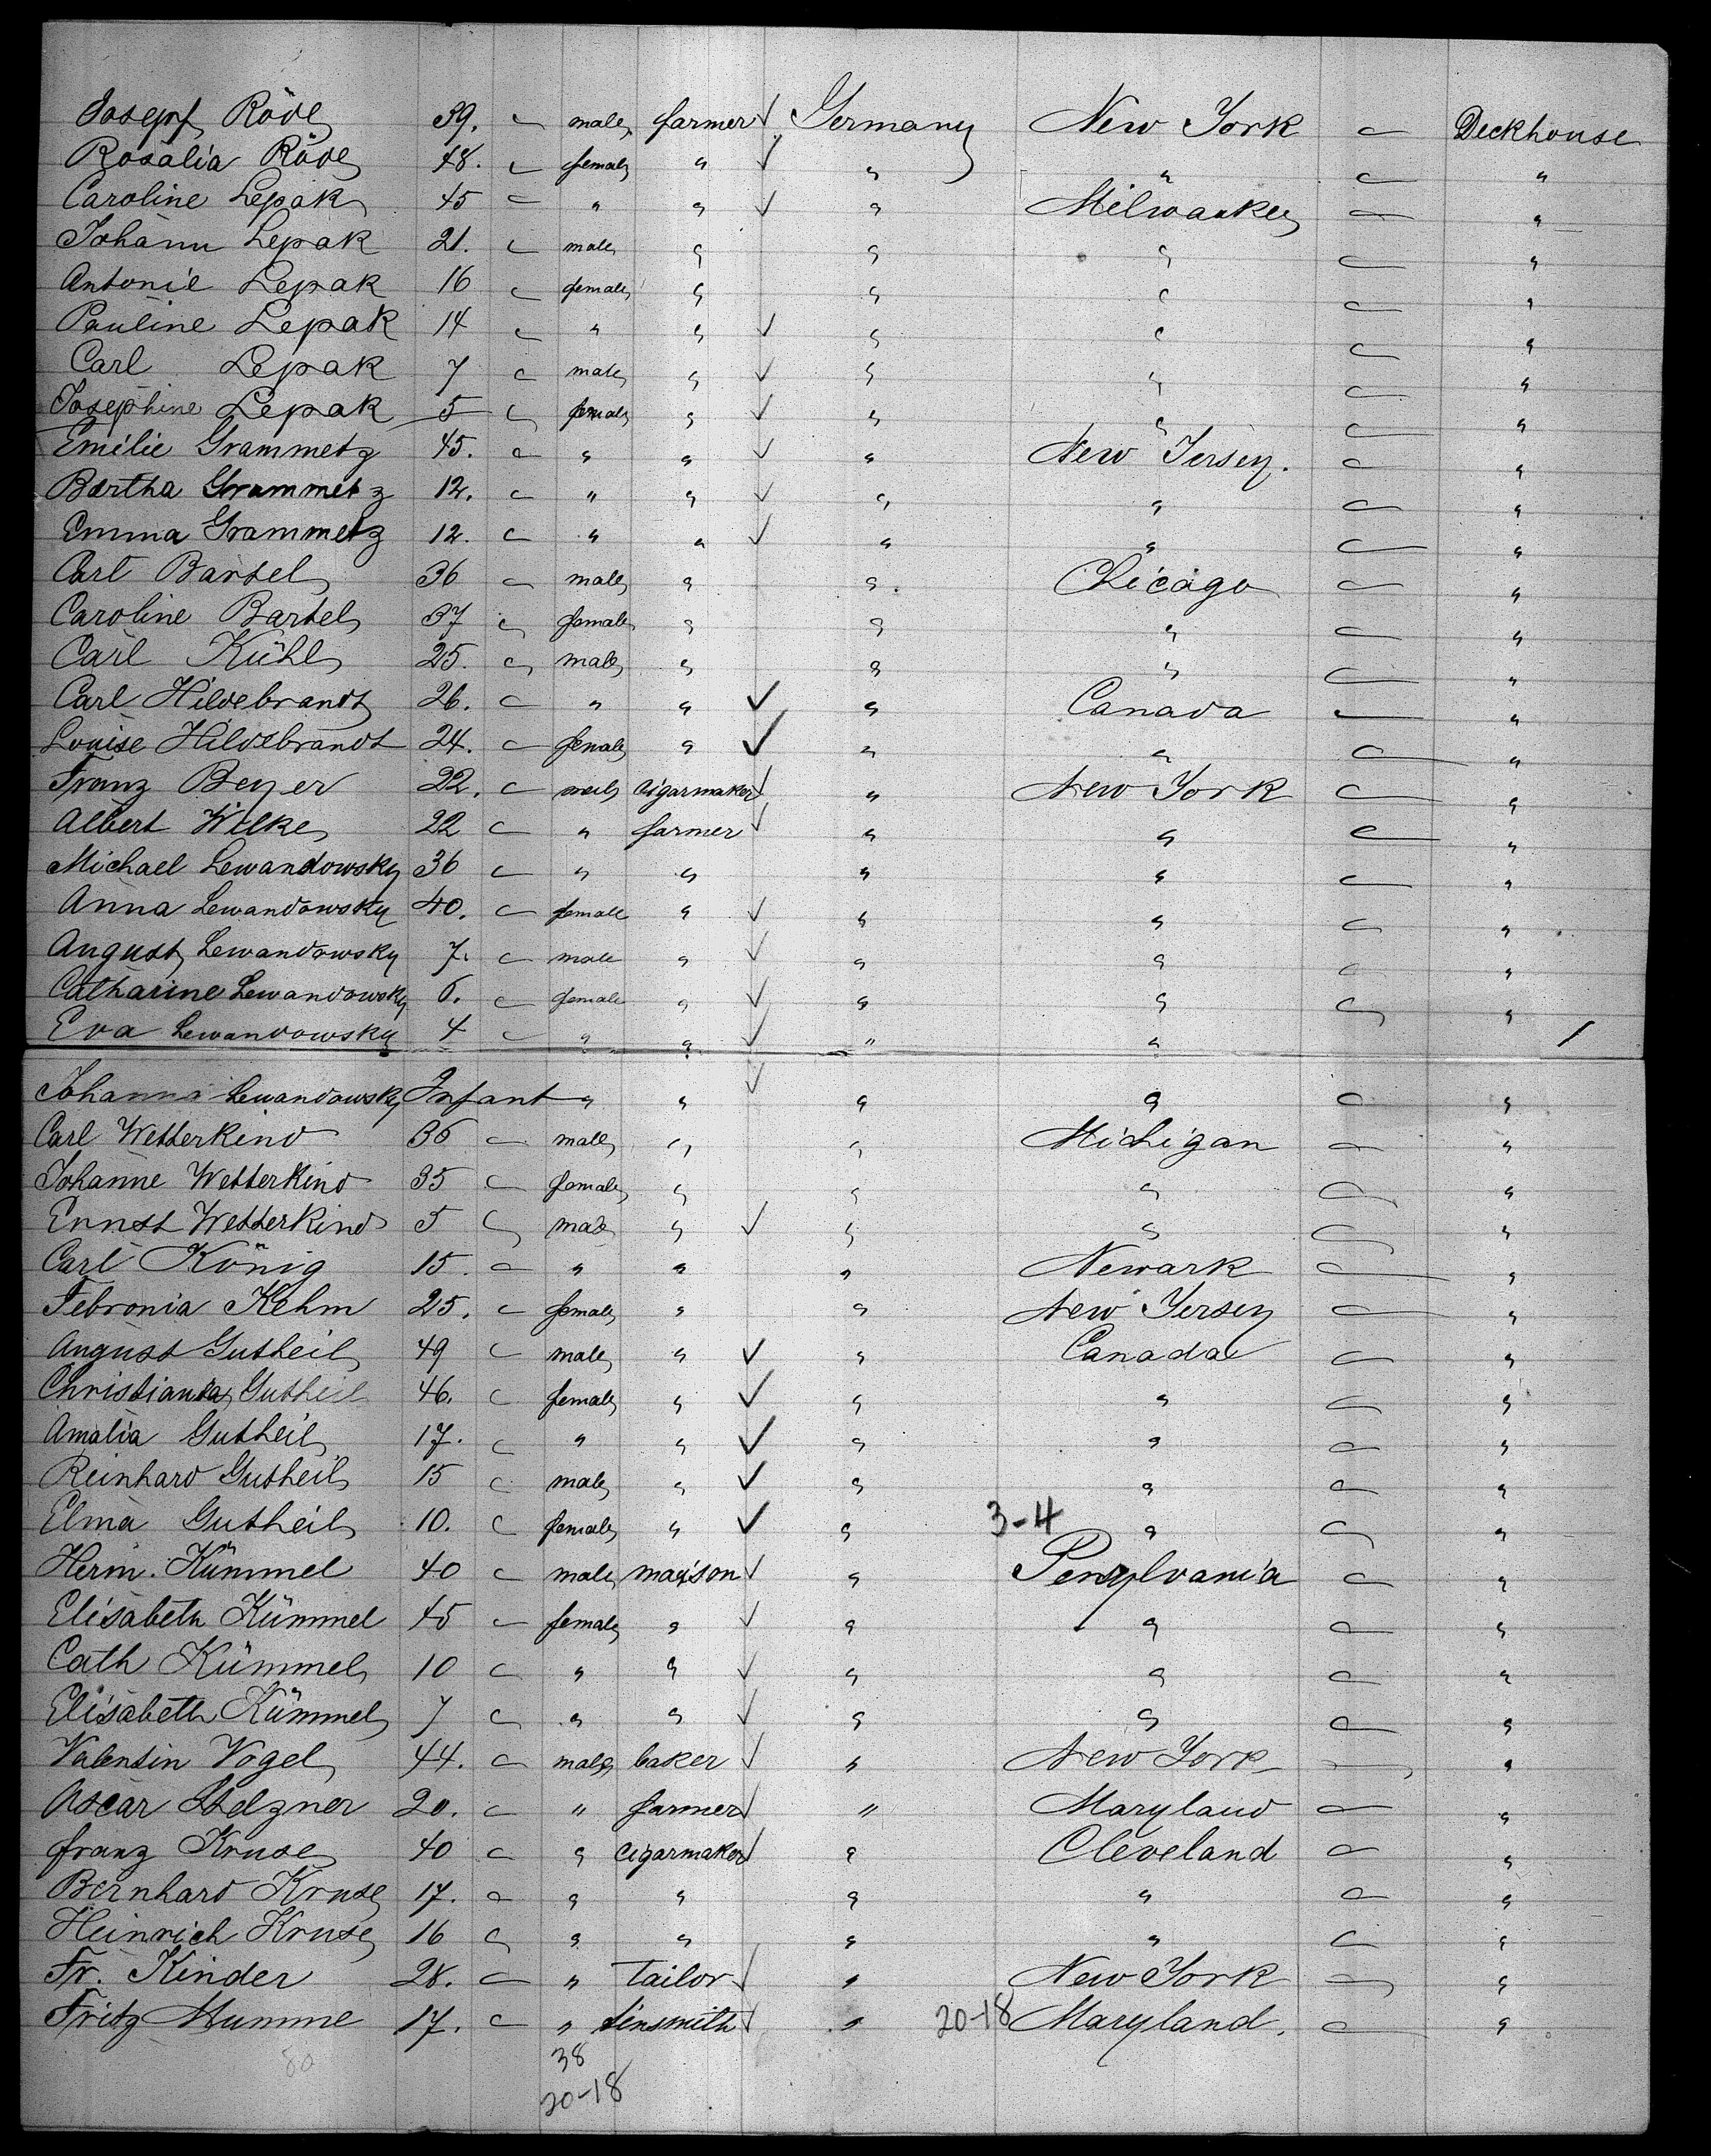 Josepf Röde 39. male farmer Germany New York Deckhouse
Rosalia Röde 48. female " " " "
Caroline Lepak 45 " " " Milwaukee "
Johann Lepak 21. male " " " "
Antonie Lepak 16 female " " " "
Pauline Lepak 14 " " " " "
Carl Lepak 7 male " " " "
Josephine Lepak 5 female " " " "
Emilie Grammetz 45. " " " New Jersey. "
Bertha Grammetz 12. " " " " "
Emma Grammetz 12. " " " " "
Carl Bartel 36 male " " Chicago "
Caroline Bartel 37 female " " " "
Carl Kühl 25. male " " " "
Carl Hildebrandt 26. " " " Canada "
Louise Hildebrandt 24. female " " " "
Franz Beyer 22. male cigarmaker " New York "
Albert Wilke 22 " farmer " " "
Michael Lewandowsky 36 " " " " "
Anna Lewandowsky 40. female " " " "
August Lewandowsky 7. male " " " "
Catharine Lewandowsky 6. female " " " "
Eva Lewandowsky 4 " " " " 1
Johanna Lewandowsky Infant " " " " "
Carl Wetterkind 36 male " " Michigan "
Johanne Wetterkind 35 female " " " "
Ernst Wetterkind 5 male " " " "
Carl König 15. " " " Newark "
Febronia Kehm 25. female " " New Jersey "
August Gutheil 49 male " " Canada "
Christiana Gutheil 46. female " " " "
Amalia Gutheil 17. " " " " "
Reinhard Gutheil 15 male " " " "
Elma Gutheil 10. female " " 3-4 " "
Herm. Kümmel 40 male mayson " Pensylvania "
Elisabeth Kümmel 45 female " " " "
Cath Kümmel 10 " " " " "
Elisabeth Kümmel 7 " " " " "
Valentin Vogel 44. male baker " New York "
Oscar Stelzner 20. " farmer " Maryland "
franz Kruse 40 " cigarmaker " Cleveland "
Bernhard Kruse 17. " " " " "
Heinrich Kruse 16 " " " " "
Fr. Kinder 28. " Tailor " New York "
Fritz Mumme 17. " tinsmith " 20-18 Maryland. "
38
20-18